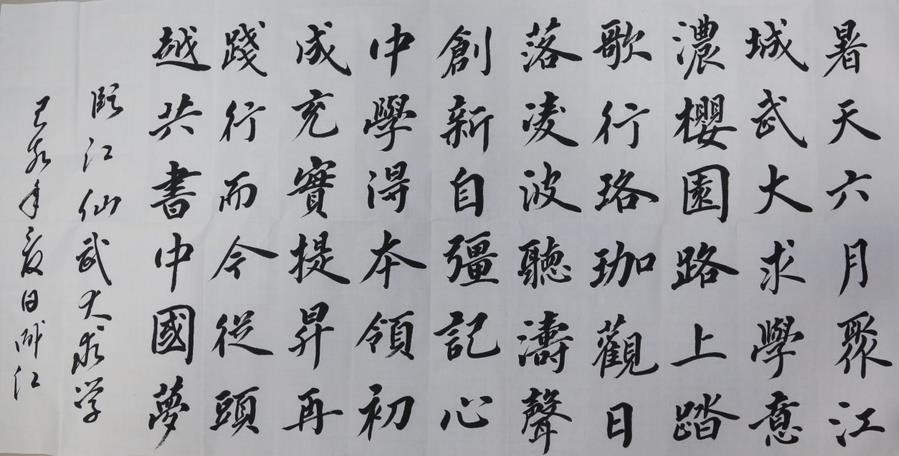 暑天六月聚江
城武大求學意
濃櫻園路上踏
歌行珞珈觀日
落凌波聽濤聲
創新自彊記心
中學得本領初
成充實提昇再
踐行而今從頭
越共書中國夢
臨江仙武大求学
己亥年夏日